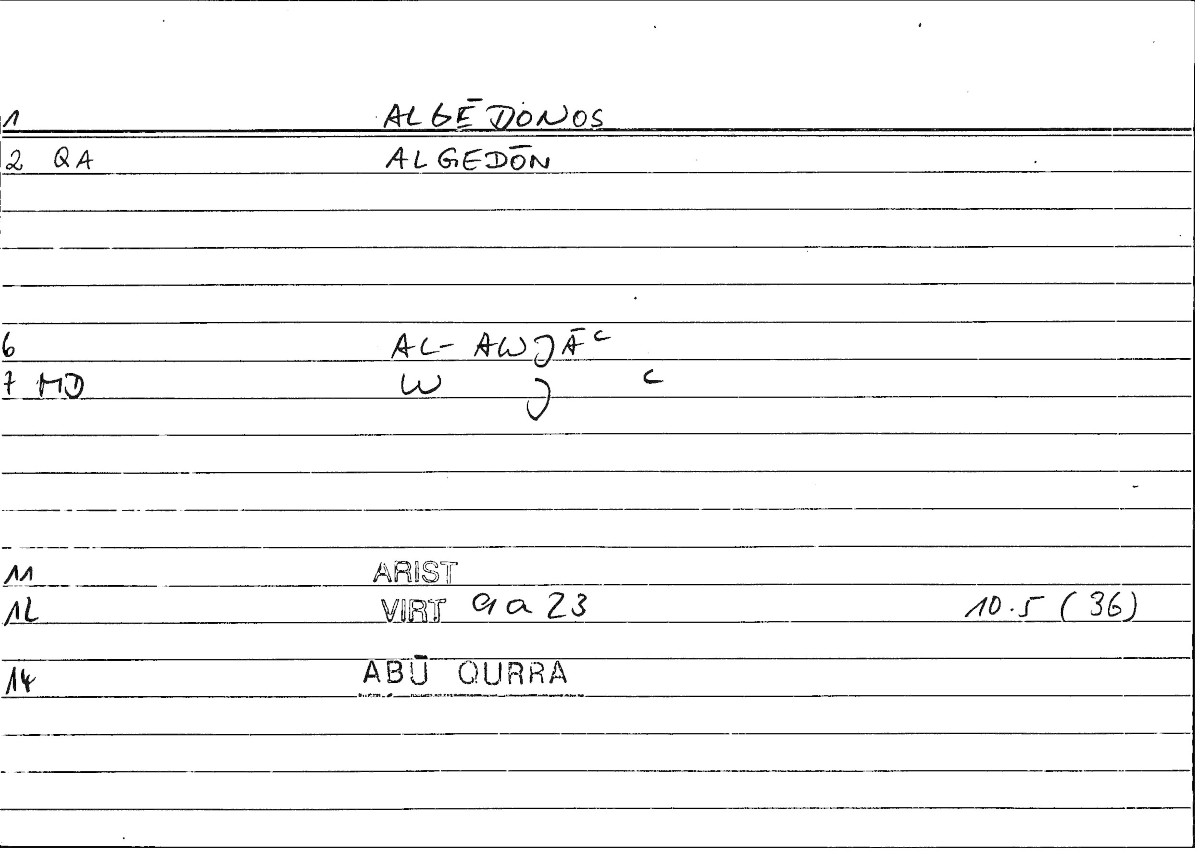 1 ALGĒDONOS
2 QA ALGEDŌN
6 AL- AWJĀ c
7 MD W J c
11 ARIST
12 VIRT 9a23 10.5 (36)
14 ABŪ QURRA